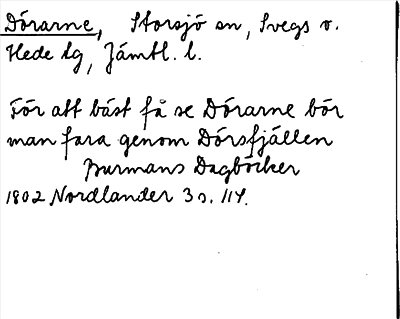 Dörarne, Storsjö sn, Svegs o.
Hede tg, Jämtl. l.
För att bäst få se Dörarne bör
man fara genom Dörsfjällen
Burmans Dagböcker
1802 Nordlander 3 s. 114.